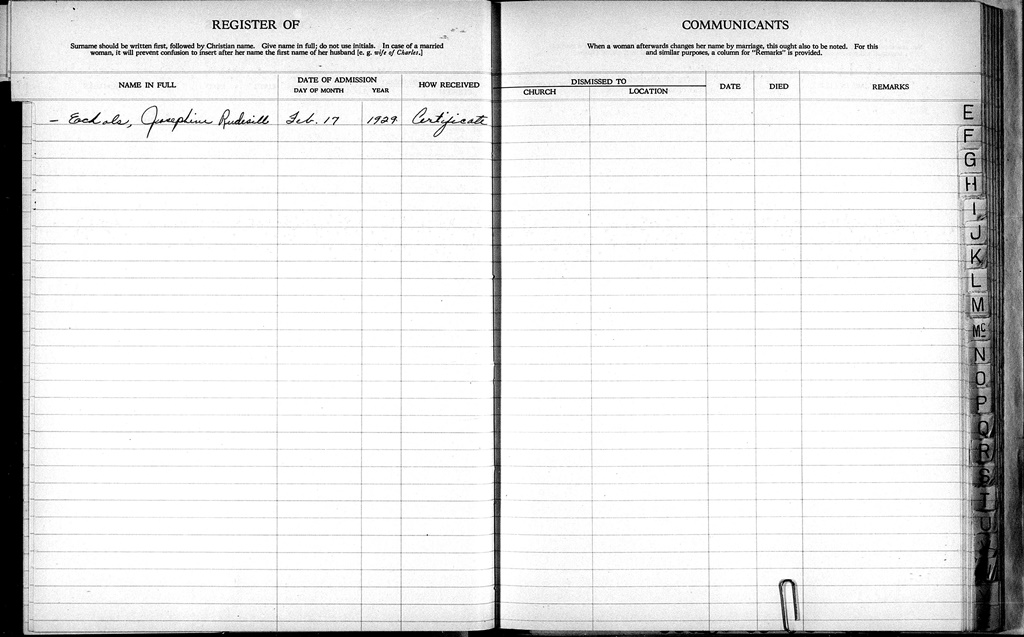 REGISTER OF
Surname should be written first, followed by Christian name. Give name in full; do not use initials. In case of a married
woman, it will prevent confusion to insert after her name the first name of her husband [e. g. wife of Charles.]
NAME IN FULL
DATE OF ADMISSION
DAY OF MONTH YEAR
HOW RECEIVED
- Echols, Josephine Rudesill Feb. 17 1929 Certificate
COMMUNICANTS
When a woman afterwards changes her name by marriage, this ought also to be noted. For this
and similar purposes, a column for "Remarks" is provided.
DISMISSED TO
CHURCH LOCATION
DATE
DIED
REMARKS
E
F
G
H
I
J
K
L
M
Mc
N
O
P
Q
R
S
T
U